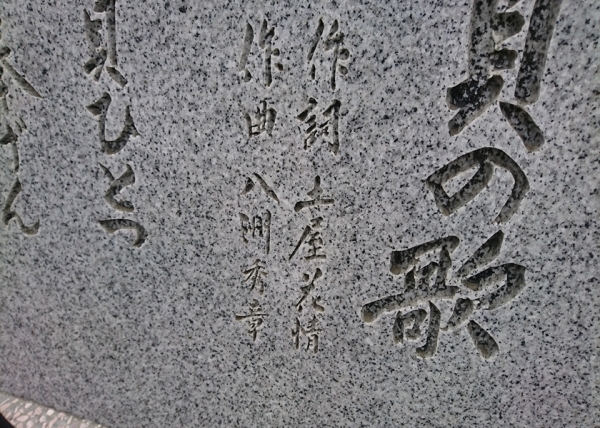 貝の歌
作詞 土屋花情
作曲 八洲秀章
貝ひとつ
ん